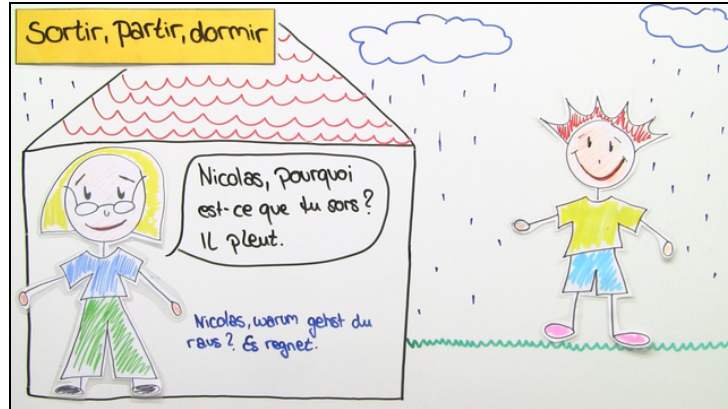 Sortir, partir, dormir
Nicolas, pourquoi
est-ce que tu sors?
IL pleut.
Nicolas, warum gehst du
raus? Es regnet.